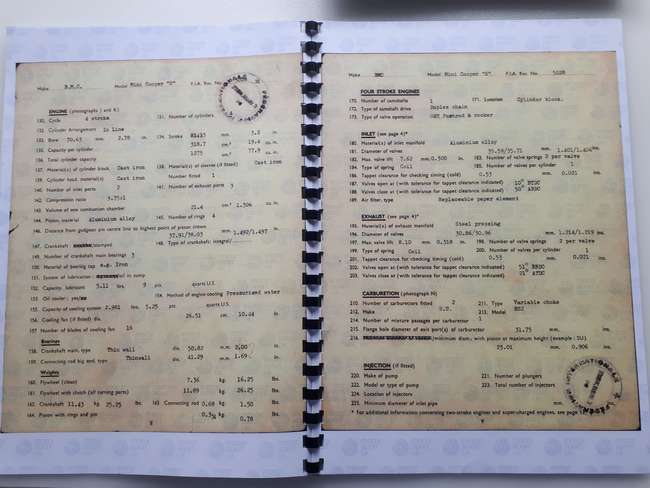 Make B.M.C. Model Mini Cooper "S" F.I.A. Rec. No.
ENGINE (photographs J and K)
130. Cycle 4 stroke
131. Number of cylinders
132. Cylinder Arrangement In Line
133. Bore 70.63 mm. 2.78 in.
134. Stroke mm. in.
135. Capacity per cylinder 318.7 cm³ 19.4 cu.in.
136. Total cylinder capacity 1275 cm³ 77.9 cu.in.
137. Material(s) of cylinder block Cast iron
138. Material(s) of sleeves (if fitted) Cast iron
139. Cylinder head, material(s) Cast iron
Number fitted 1
140. Number of inlet ports 2
141. Number of exhaust ports 3
142. Compression ratio 9.75:1
143. Volume of one combustion chamber 21.4 cm³ 1.306 cu.in.
144. Piston, material Aluminium alloy
145. Number of rings 4
146. Distance from gudgeon pin centre line to highest point of piston crown
37.91/38.03 mm. 1.492/1.497 in.
147. Crankshaft
148. Type of crankshaft: integral/
149. Number of crankshaft main bearings 3
150. Material of bearing cap Iron
151. System of lubrication: oil in sump
152. Capacity, lubricant 5.11 ltrs. 9 pts. quarts U.S.
153. Oil cooler: yes/
154. Method of engine cooling Pressurised water
155. Capacity of cooling system 2.981 ltrs. 5.25 pts. quarts U.S.
156. Cooling fan (if fitted) dia. 26.51 cm. 10.44 in.
157. Number of blades of cooling fan 16
Bearings
158. Crankshaft main, type Thin wall dia. 50.82 mm. 2.00 in.
159. Connecting rod big end, type Thinwall dia. 41.29 mm. 1.69 in.
Weights
160. Flywheel (clean) 7.36 kg. 16.25 lbs.
161. Flywheel with clutch (all turning parts) 11.89 kg. 26.25 lbs.
162. Crankshaft 11.43 kg. 25.25 lbs. 163. Connecting rod 0.68 kg. 1.50 lbs.
164. Piston with rings and pin kg. 0.78 lbs.
Make BMC Model Mini Cooper "S" F.I.A. Rec. No. 5028
FOUR STROKE ENGINES
170. Number of camshafts 1
171. Location Cylinder block.
172. Type of camshaft drive Duplex chain
173. Type of valve operation OHV Pushrod & rocker
INLET (see page 4)*
180. Material(s) of inlet manifold Aluminium alloy
181. Diameter of valves 35.58/35.71 mm. 1.401/1.406 ins.
182. Max. valve lift 7.62 mm. 0.300 in.
183. Number of valve springs 2 per valve
184. Type of spring Coil
185. Number of valves per cylinder 1
186. Tappet clearance for checking timing (cold) 0.53 mm. 0.021 ins.
187. Valves open at (with tolerance for tappet clearance indicated) 10° BTDC
188. Valves close at (with tolerance for tappet clearance indicated) 50° ABDC
189. Air filter, type Replaceable paper element
EXHAUST (see page 4)*
195. Material(s) of exhaust manifold Steel pressing
196. Diameter of valves 30.86/30.96 mm. 1.214/1.219 ins.
197. Max. valve lift 8.10 mm. 0.318 in.
198. Number of valve springs 2 per valve
199. Type of spring Coil
200. Number of valves per cylinder 1
201. Tappet clearance for checking timing (cold) 0.53 mm. 0.021 ins.
202. Valves open at (with tolerance for tappet clearance indicated) 51° BBDC
203. Valves close at (with tolerance for tappet clearance indicated) 21° ATDC
CARBURETTION (photograph N)
210. Number of carburettors fitted 2
211. Type Variable choke
212. Make S.U.
213. Model HS2
214. Number of mixture passages per carburettor 1
215. Flange hole diameter of exit port(s) of carburettor 31.75 mm. ins.
216. minimum diam.; with piston at maximum height (example: SU)
23.01 mm. 0.906 ins.
INJECTION (if fitted)
220. Make of pump
221. Number of plungers
222. Model or type of pump
223. Total number of injectors
224. Location of injectors
225. Minimum diameter of inlet pipe
* For additional information concerning two-stroke engines and super-charged engines, see page